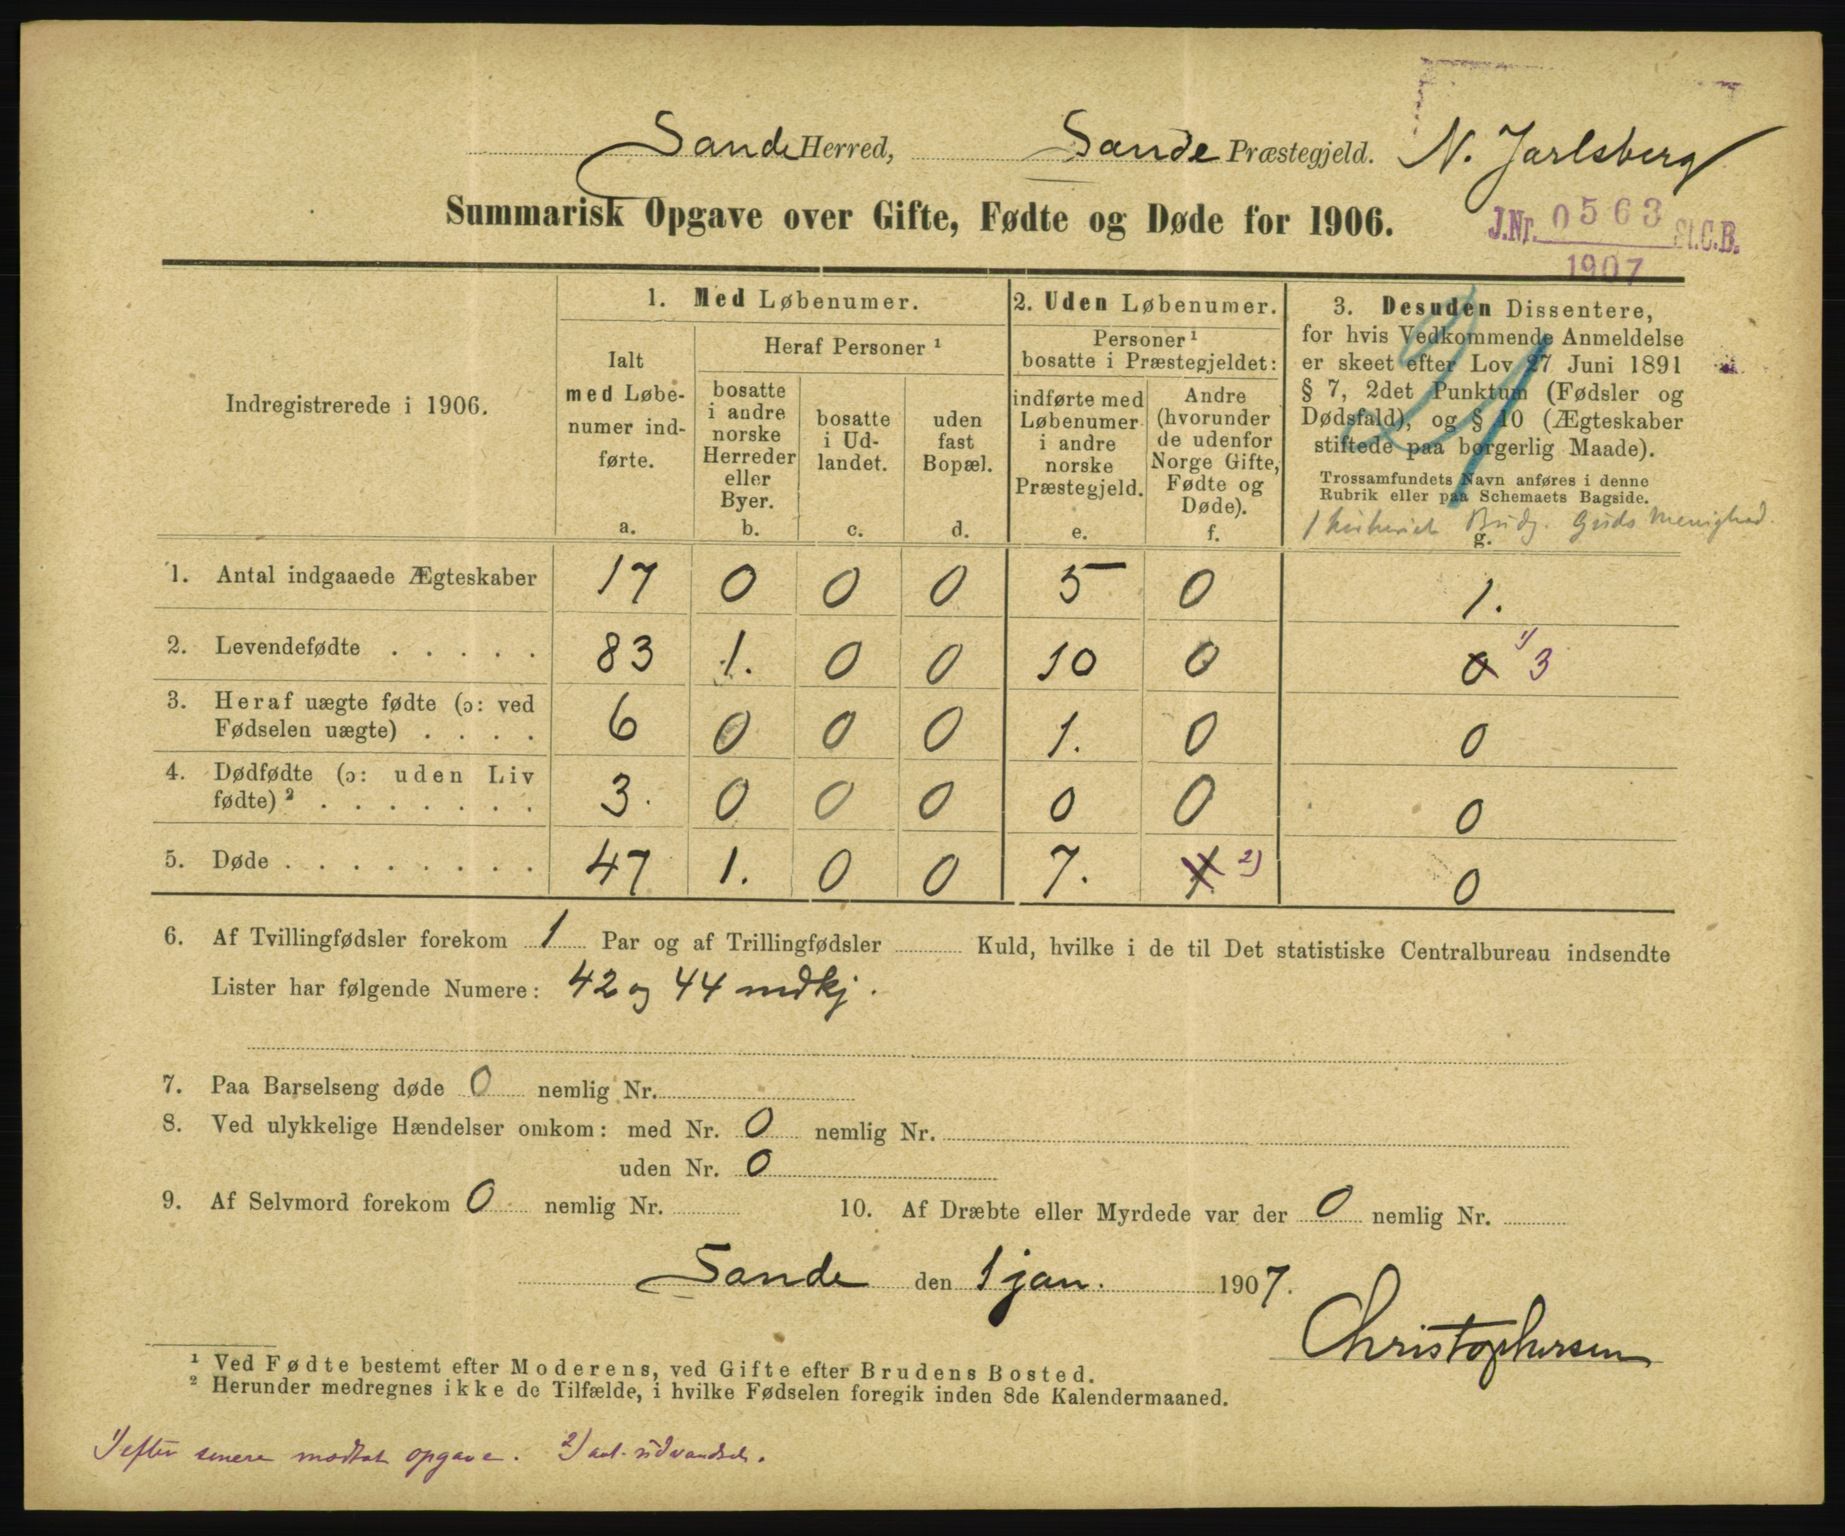 Sande Herred, Sande Præstegjeld. N. Jarlsberg
Summarisk Opgave over Gifte, Fødte og Døde for 1906.
J.Nr. 0563 St.C.B.
1907
Indregistrerede i 1906.
1. Med Løbenumer.
Ialt
med Løbe-
numer ind-
førte.
a.
Heraf Personer ¹
bosatte
i andre
norske
Herreder
eller
Byer.
b.
bosatte
i Ud-
landet.
c.
uden
fast
Bopæl.
d.
2. Uden Løbenumer.
Personer ¹
bosatte i Præstegjeldet:
indførte med
Løbenumer
i andre
norske
Præstegjeld.
e.
Andre
(hvorunder
de udenfor
Norge Gifte,
Fødte og
Døde).
f.
3. Desuden Dissentere,
for hvis Vedkommende Anmeldelse
er skeet efter Lov 27 Juni 1891
§ 7, 2det Punktum (Fødsler og
Dødsfald), og § 10 (Ægteskaber
stiftede paa borgerlig Maade).
Trossamfundets Navn anføres i denne
Rubrik eller paa Schemaets Bagside.
Guds Menighed.
g.
1. Antal indgaaede Ægteskaber 17 0 0 0 5 0 1.
2. Levendefødte . . . . . 83 1. 0 0 10 0 0 ¹) 3
3. Heraf uægte fødte (ɔ: ved
Fødselen uægte) . . . . 6 0 0 0 1. 0 0
4. Dødfødte (ɔ: uden Liv
fødte) ² . . . . . . . 3. 0 0 0 0 0 0
5. Døde . . . . . . . . 47 1. 0 0 7. 1. ²) 0
6. Af Tvillingfødsler forekom 1 Par og af Trillingfødsler Kuld, hvilke i de til Det statistiske Centralbureau indsendte
Lister har følgende Numere: 42 og 44 mdkj.
7. Paa Barselseng døde 0 nemlig Nr.
8. Ved ulykkelige Hændelser omkom: med Nr. 0 nemlig Nr.
uden Nr. 0
9. Af Selvmord forekom 0 nemlig Nr. 10. Af Dræbte eller Myrdede var der 0 nemlig Nr.
Sande den 1 jan. 1907.
Christophersen
¹ Ved Fødte bestemt efter Moderens, ved Gifte efter Brudens Bosted.
² Herunder medregnes ikke de Tilfælde, i hvilke Fødselen foregik inden 8de Kalendermaaned.
¹) efter senere modtat opgave. ²)